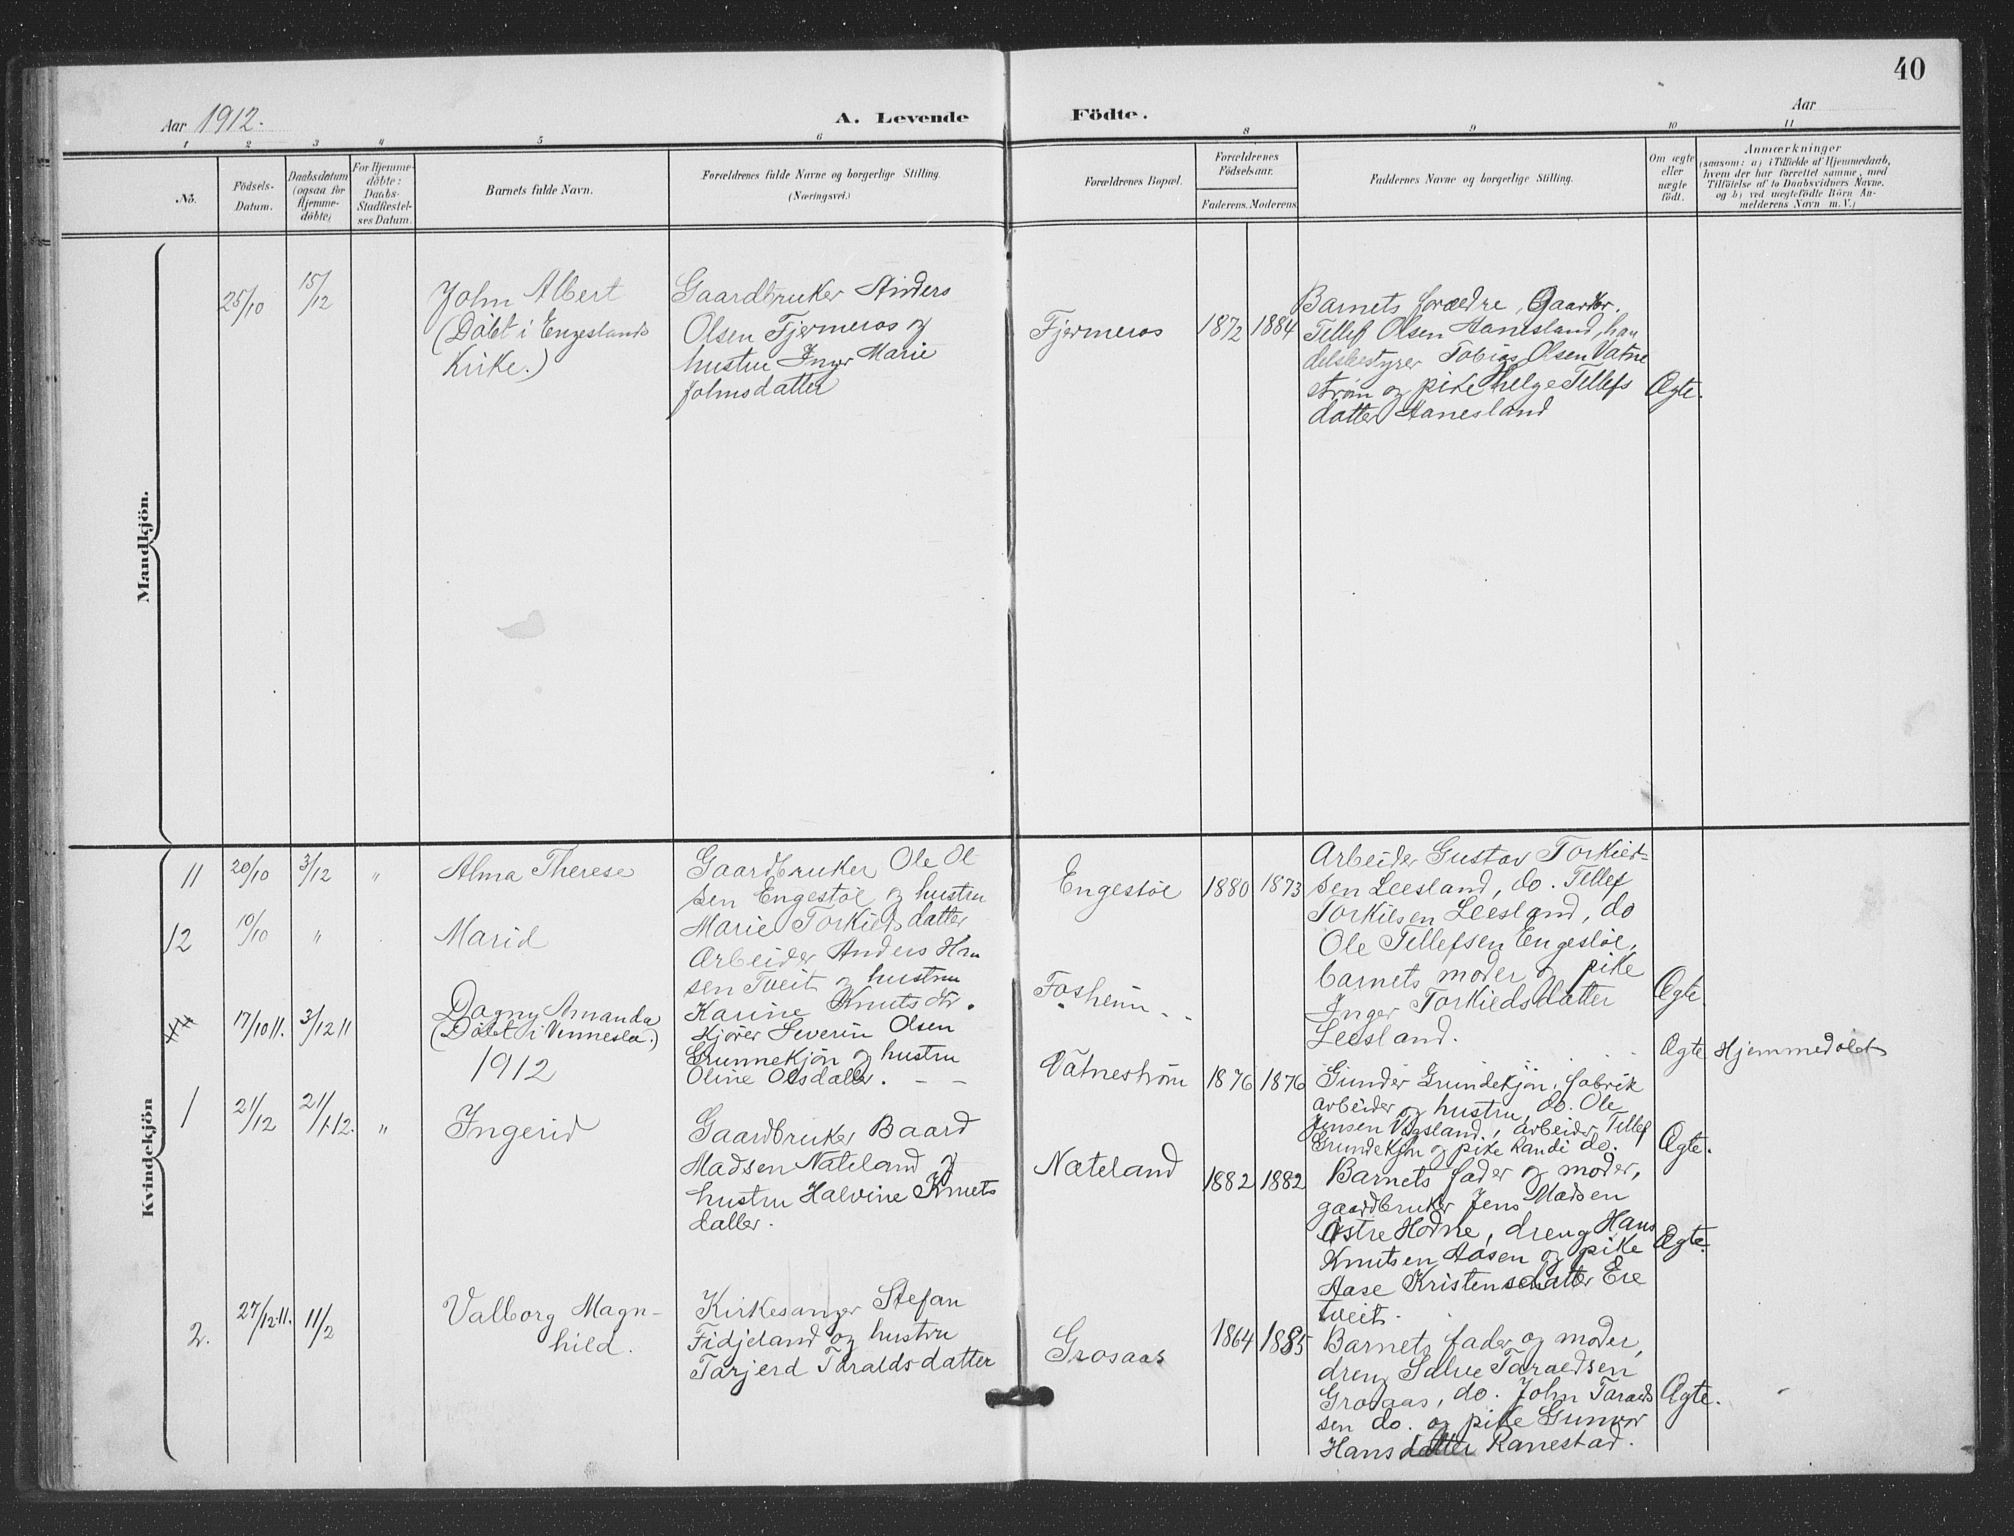 40
Aar 1912.
A. Levende
Födte.
Aar
1 2 3 4 5 6 8 9 10 11
No.
Födsels-
Datum.
Daabsdatum
(ogsaa for
Hjemme-
döbte)
For Hjemme-
döbte:
Daabs-
Stadfæstel-
ses Datum.
Barnets fulde Navn.
Forældrenes fulde Navne og borgerlige Stilling.
(Næringsvei.)
Forældrenes Bopæl.
Forældrenes
Födselsaar.
Faderens. Moderens.
Faddernes Navne og borgerlige Stilling.
Om ægte
eller
uægte
födt.
Anmærkninger
(saasom: a) i Tilfælde af Hjemmedaab,
hvem der har forrettet samme, med
Tilföielse af to Daabsvidners Navne.
og b) ved uægtefödte Börn An-
melderens Navn m. V.)
Mandkjön.
25/10
15/12
John Albert
(Döbt i Engeslands
Kirke.)
Gaardbruker Anders
Olsen Fjermeros og
hustru Inger Marie
Johnsdatter
Fjermeros
1872 1884
Barnets forældre, Gaardbr.
Tellef Olsen Aanesland, han
delsbestyrer Tobias Olsen Vatne
ström og pike Helge Tellefs
datter Aanesland
Ægte.
Kvindekjön
11
20/10
3/12
"
Alma Therese
Gaardbruker Ole Ol
sen Engestöl og hustru
Marie Torkieldsdatter
Engestöl
1880 1873
Arbeider Gustav Torkield-
sen Leesland, do. Tellef
Torkilsen Leesland, do
Ole Tellefsen Engestöl,
barnets moder og pike
Inger Torkieldsdatter
Leesland.
Ægte
12
10/10
"
Marid
Arbeider Anders Han
sen Tveit og hustru
Karine Knutsdtr.
Fosheim
Ægte Hjemmedöbt
17/10 11.
3/12 11
Dagny Amanda
(Döbt i Vennesla.)
Kjörer Severin Olsen
Grunnekjön og hustru
Oline Olsdatter. - -
Vatneström
1876 1876
Gunder Grundekjön, fabrik
arbeider og hustru, do. Ole
Jensen Vegsland, arbeider Tellef
Grundekjön og pike Randi do.
Ægte.
1912
1
21/12
21/1.12.
"
Ingerid
Gaardbruker Baard
Madsen Nateland og
hustru Halvine Knuts
datter.
Nateland
1882 1882
Barnets fader og moder,
gaardbruker Jens Madsen
Östre Hodne, dreng Hans
Knutsen Aasen og pike
Aase Kristensdatter Ere
tveit.
Ægte.
2.
27/12.11.
11/2
Valborg Magn-
hild.
Kirkesanger Stefan
Fidjeland og hustru
Tarjerd Taraldsdatter
Grosaas
1864 1885
Barnets fader og moder,
dreng Salve Taraldsen
Grosaas, do. John Taralds
sen do. og pike Gunvor
Hansdatter Ranestad.
Ægte.